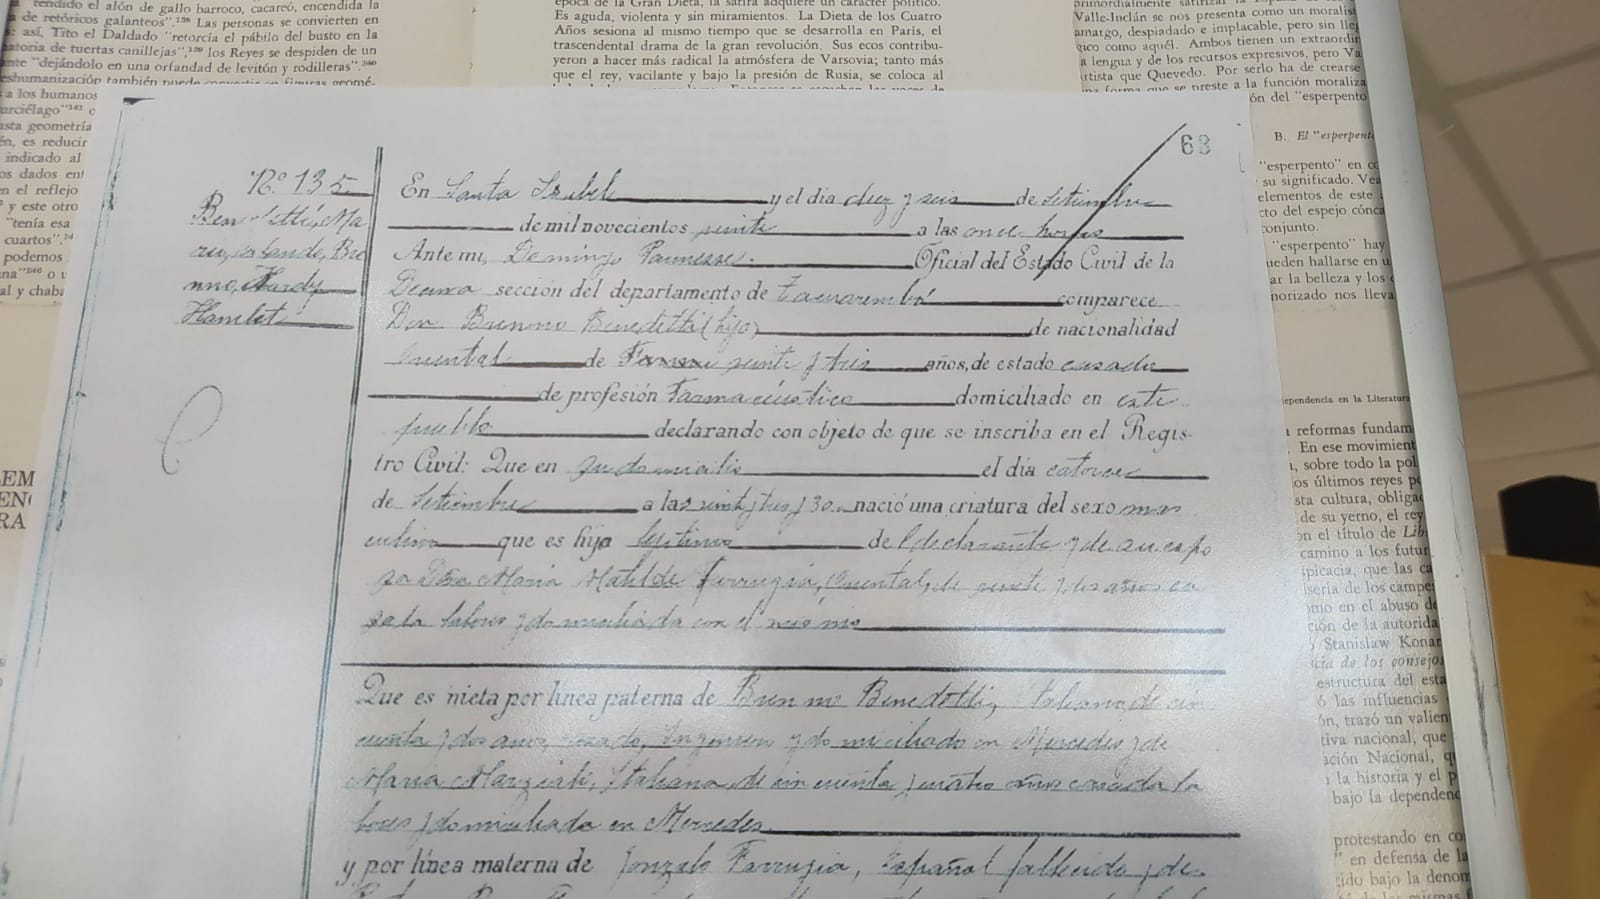 tendido el alón de gallo barroco, cacareó, encendida la
a de retóricos galanteos".¹³⁸ Las personas se convierten en
: así, Tito el Daldado "retorcía el pábilo del busto en la
atoria de tuertas canillejas",¹³⁹ los Reyes se despiden de un
ante "dejándolo en una orfandad de levitón y rodilleras".¹⁴⁰
eshumanización también puede
a los humanos
urciélago"¹⁴¹
asta geometría
én, es reducir
indicado al
os dados
en el reflejo
y este otro
"tenía esa
cuartos".
podemos
al y chaba
época de la Gran Dieta, la sátira adquiere un carácter político.
Es aguda, violenta y sin miramientos. La Dieta de los Cuatro
Años sesiona al mismo tiempo que se desarrolla en París, el
trascendental drama de la gran revolución. Sus ecos contribu-
yeron a hacer más radical la atmósfera de Varsovia; tanto más
que el rey, vacilante y bajo la presión de Rusia, se coloca al
primordialmente satirizar
Valle-Inclán se nos presenta como un moralist
amargo, despiadado e implacable, pero sin lle
gico como aquél. Ambos tienen un extraordir
a lengua y de los recursos expresivos, pero Va
rtista que Quevedo. Por serlo ha de crearse
una forma que se preste a la función moraliza
ón del "esperpento
B. El "esperpent
"esperpento" en
su significado. Vea
elementos de este
cto del espejo cónca
conjunto.
"esperpento" hay
ueden hallarse en u
ar la belleza y los
norizado nos lleva
68
Nº 135
Benedetti, Ma
rio, Orlando, Bre
nno, Hardy
Hamlet
En Santa Isabel y el día diez y seis de Setiembre
de mil novecientos veinte a las once horas
Ante mi, Domingo Oficial del Estado Civil de la
Decima sección del departamento de Tacuarembó comparece
Don Brenno Benedetti (hijo) de nacionalidad
Oriental de veinte y tres años, de estado casado
de profesión Farmaceútico domiciliado en este
pueblo declarando con objeto de que se inscriba en el Regis-
tro Civil: Que en su domicilio el día catorce
de Setiembre a las veinte y tres y 30 nació una criatura del sexo mas
culino que es hijo legítimo de el declarante y de su espo
sa Doña María Matilde Farrugia, Oriental, de veinte y dos años ca
sada labores y domiciliada con el mismo
Que es nieta por línea paterna de Brenno Benedetti, Italiano, de cin
cuenta y dos años, casado, Ingeniero y domiciliado en Mercedes y de
María Marziali, Italiana, de cincuenta y cuatro años casada la
bores y domiciliada en Mercedes
y por línea materna de Gonzalo Farrugia, Español fallecido y de
ependencia en la Literatura
reformas fundam
En ese movimient
, sobre todo la pol
os últimos reyes p
sta cultura, obliga
de su yerno, el rey
on el título de Lib
camino a los futur
spicacia, que las ca
iseria de los campe
omo en el abuso de
ción de la autorida
Stanislaw Konar
cia de los consejos
estructura del esta
6 las influencias
ón, trazó un valien
tiva nacional, que
ación Nacional, qu
la historia y el p
bajo la dependenc
protestando en co
" en defensa de la
ido bajo la denom